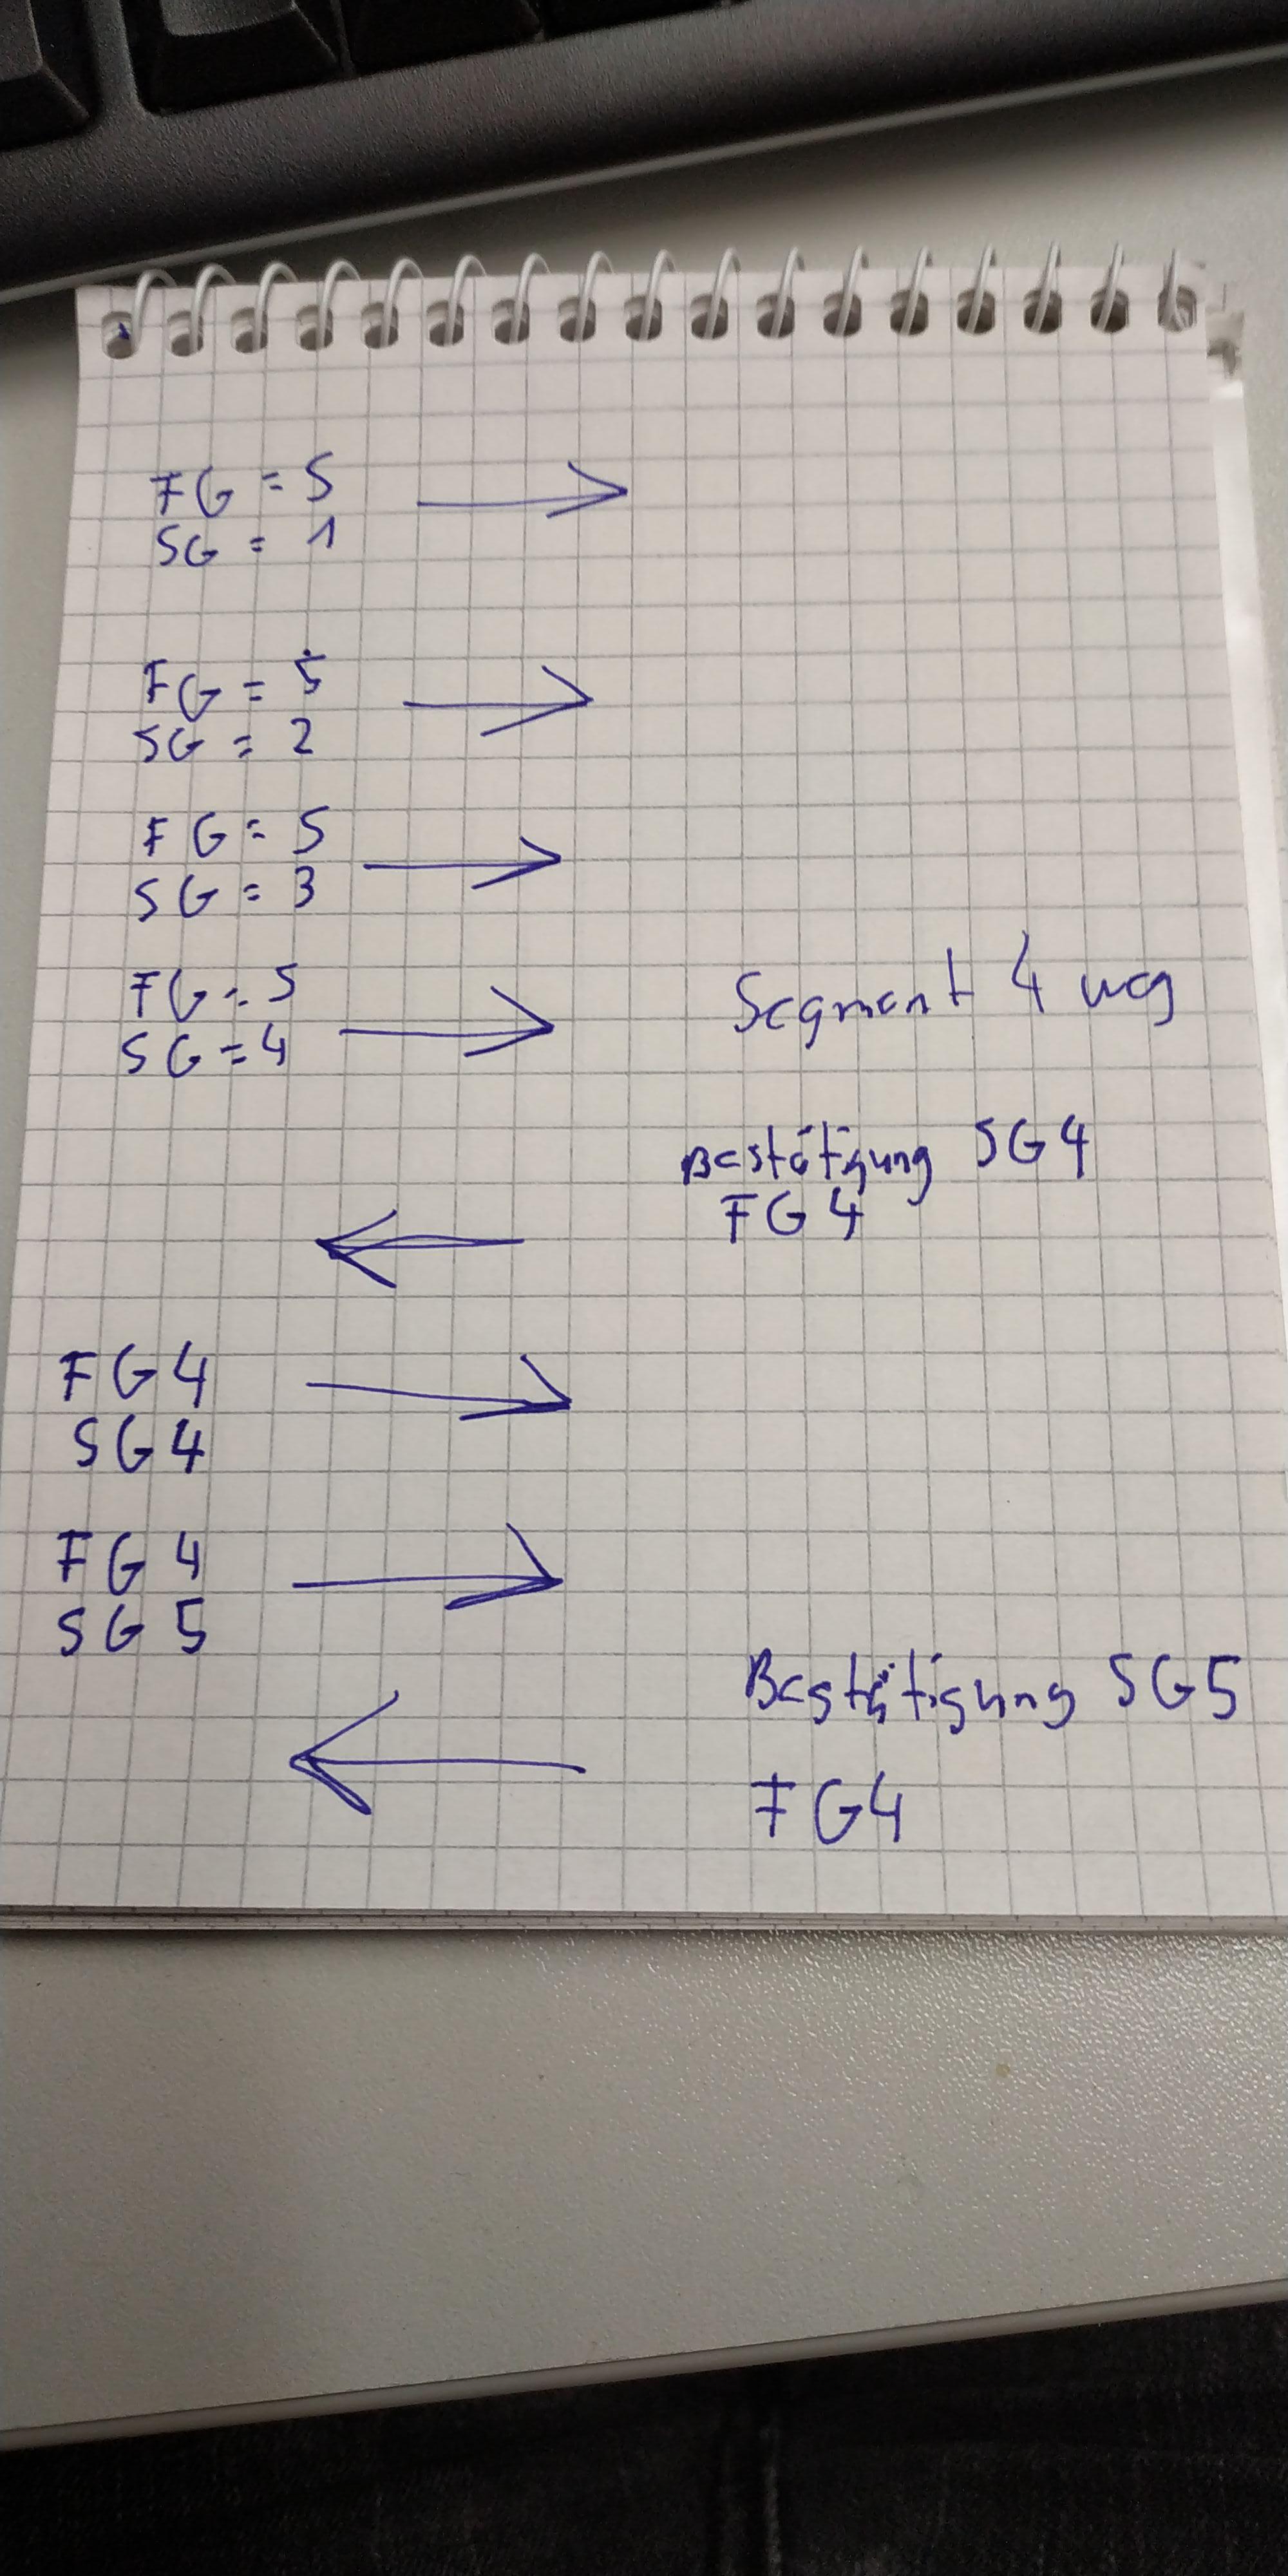 FG = 5
SG = 1
FG = 5
SG = 2
FG = 5
SG = 3
FG = 5
SG = 4
Segment 4 weg
Bestätigung SG4
FG4
FG4
SG4
FG4
SG5
Bestätigung SG5
FG4